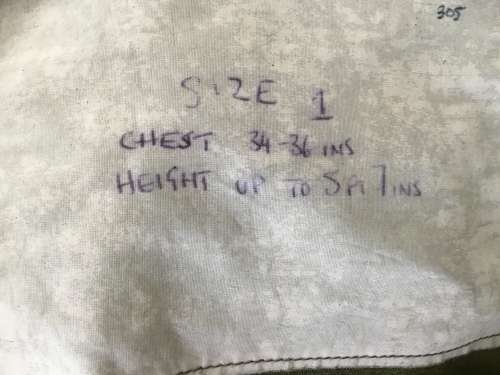 305
SIZE 1
CHEST 34-36 INS
HEIGHT UP TO 5 FT 7 INS